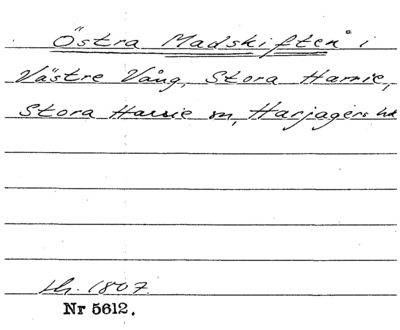 Östra Madskiften i
Västre Vång, Stora Harrie,
Stora Harrie sn, Harjagers hd
Lh. 1807.
Nr 5612.